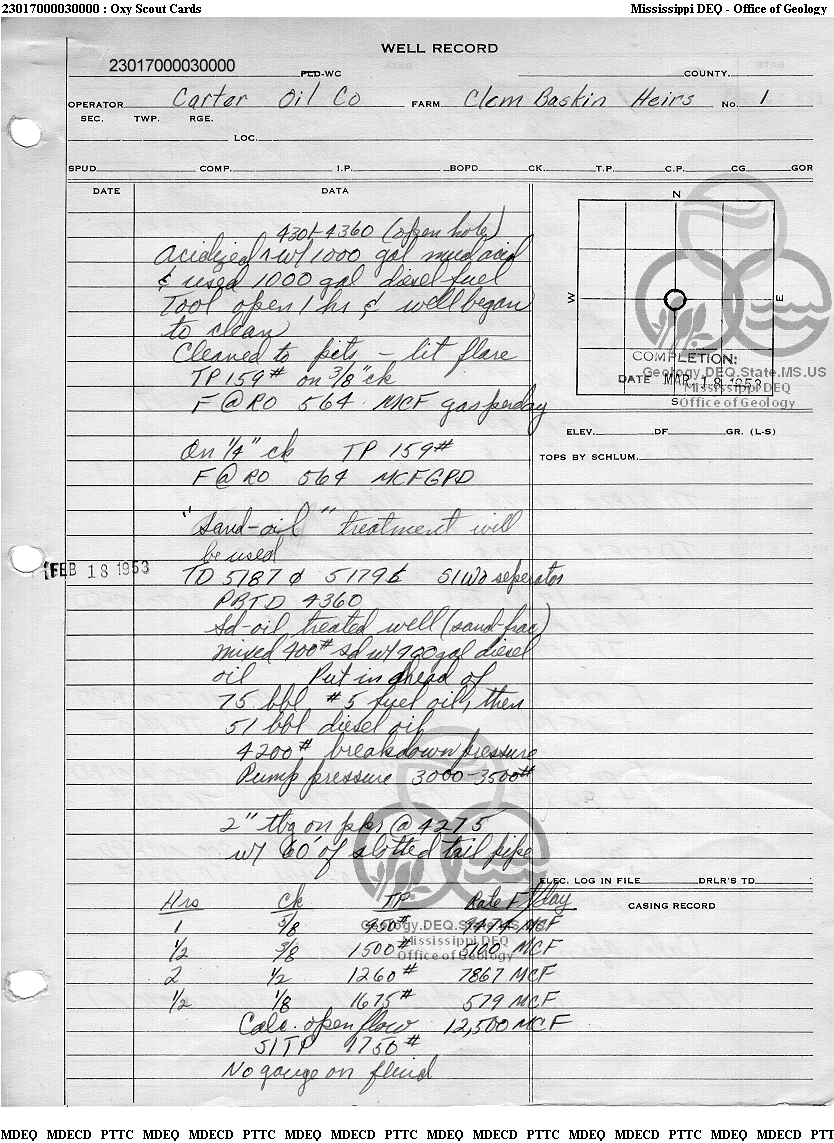 23017000030000 : Oxy Scout Cards
Mississippi DEQ - Office of Geology
WELL RECORD
23017000030000
PLD-WC
COUNTY
OPERATOR Carter Oil Co FARM Clem Baskin Heirs No. 1
SEC. TWP. RGE.
LOC.
SPUD COMP. I.P. BOPD CK. T.P. C.P. CG GOR
DATE DATA
4301-4360 (open hole)
Acidized ^ w/ 1000 gal mud acid
& used 1000 gal diesel fuel
Tool open 1 hr & well began
to clean
Cleaned to pits - lit flare
TP 159# on 3/8" ck
F @ RO 564 MCF gas per day
On 1/4" ck TP 159#
F @ RO 564 MCFGPD
"Sand-oil" treatment will
be used
FEB 18 1953
TD 5187 5179 SI WO seperator
PBTD 4360
Sd-oil treated well (sand-frac)
mixed 400# sd w/ 900 gal diesel
oil Put in ahead of
75 bbl #5 fuel oil, then
51 bbl diesel oil
4200# breakdown pressure
Pump pressure 3000-3500#
2" tbg on pkr @ 4275
w/ 60' of slotted tail pipe
Hrs Ck TP Rate F/day
1 5/8 950# 9474 MCF
1/2 3/8 1500# 5100 MCF
2 1/2 1260# 7867 MCF
1/2 1/8 1675# 579 MCF
Calc. open flow 12,500 MCF
SITP 1750#
No gauge on fluid
N
W
E
S
COMPLETION:
DATE MAR 18 1953
Geology.DEQ.State.MS.US
Mississippi DEQ
Office of Geology
ELEV. DF GR. (L-S)
TOPS BY SCHLUM.
ELEC. LOG IN FILE DRLR'S TD
CASING RECORD
Geology.DEQ.State.MS
Mississippi DEQ
Office of Geology
MDEQ MDECD PTTC MDEQ MDECD PTTC MDEQ MDECD PTTC MDEQ MDECD PTTC MDEQ MDECD PTTC MDEQ MDECD PTT